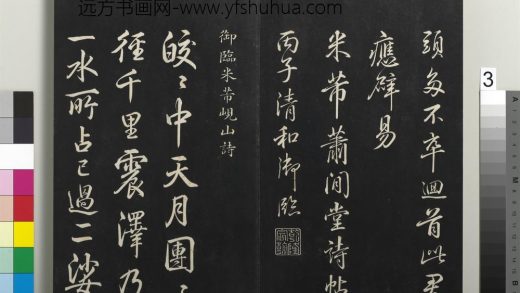 远方书画网-www.yfshuhua.com
頭多不卒迴首此
應辟易
米芾蕭閒堂詩帖
丙子清和御臨
御臨米芾峴山詩
皎〻中天月團〻
徑千里震澤乃
一水所占已過二娑
3
A
M
B